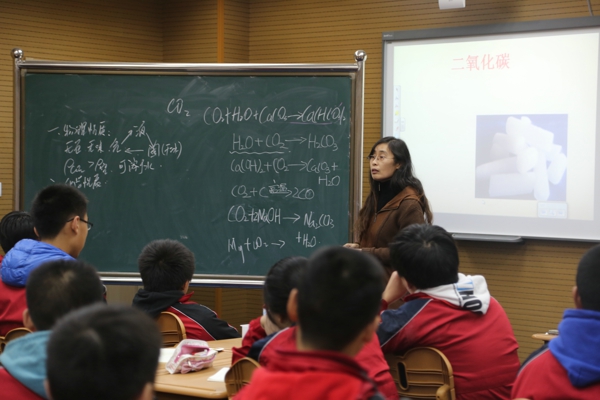 CO₂
一、物理性质:
无色 无味 气 液
固(干冰)
ρCO₂ > ρ空 可溶于水
二、化学性质
CO₂+H₂O+CaCO₃→Ca(HCO₃)₂
H₂O+CO₂→H₂CO₃
Ca(OH)₂+CO₂→CaCO₃+
H₂O
CO₂+C 高温 2CO
CO₂+2NaOH→Na₂CO₃
+H₂O
Mg+CO₂→
二氧化碳